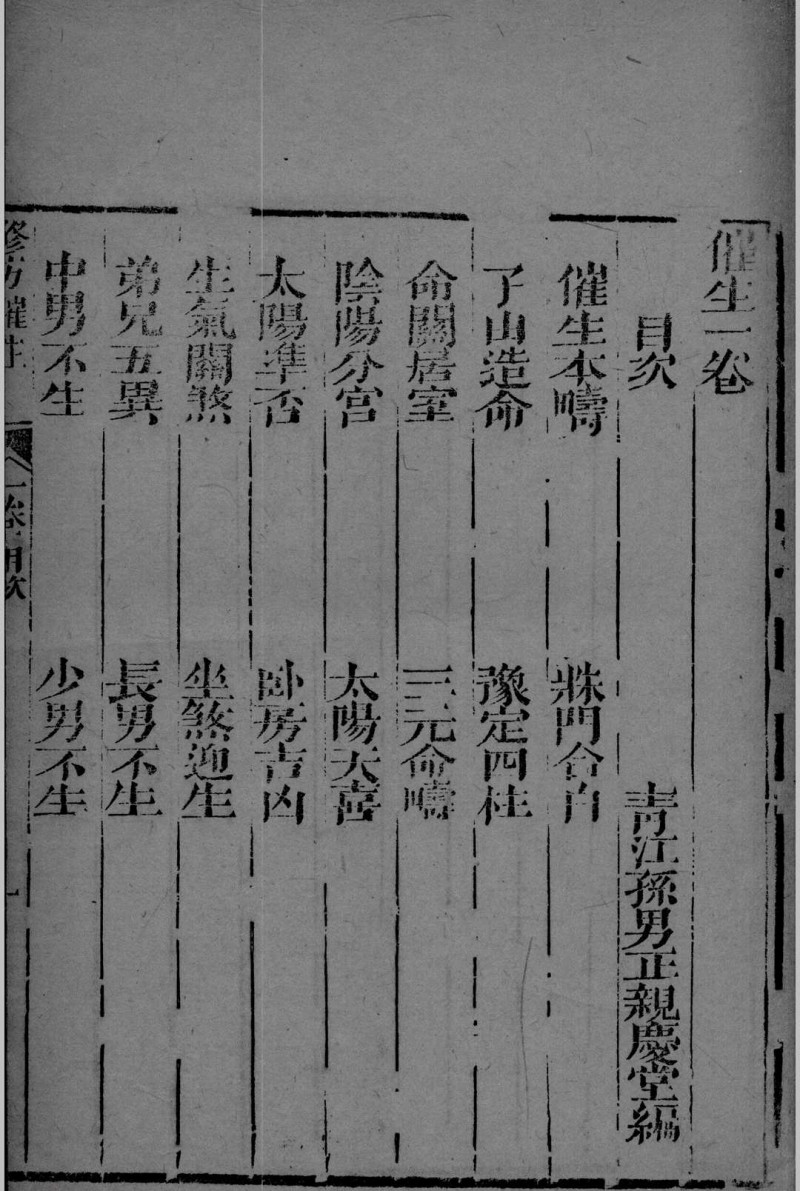 催生一卷
目次 青江孫男正親慶堂編
催生本疇 門合
子山造命 豫定四柱
命關居室 三元命疇
陰陽分宮 太陽天喜
太陽準否 卧房吉凶
生氣關煞 坐煞迎生
弟兄五異 長男不生
中男不生 少男不生
修方催生 一卷目次 一